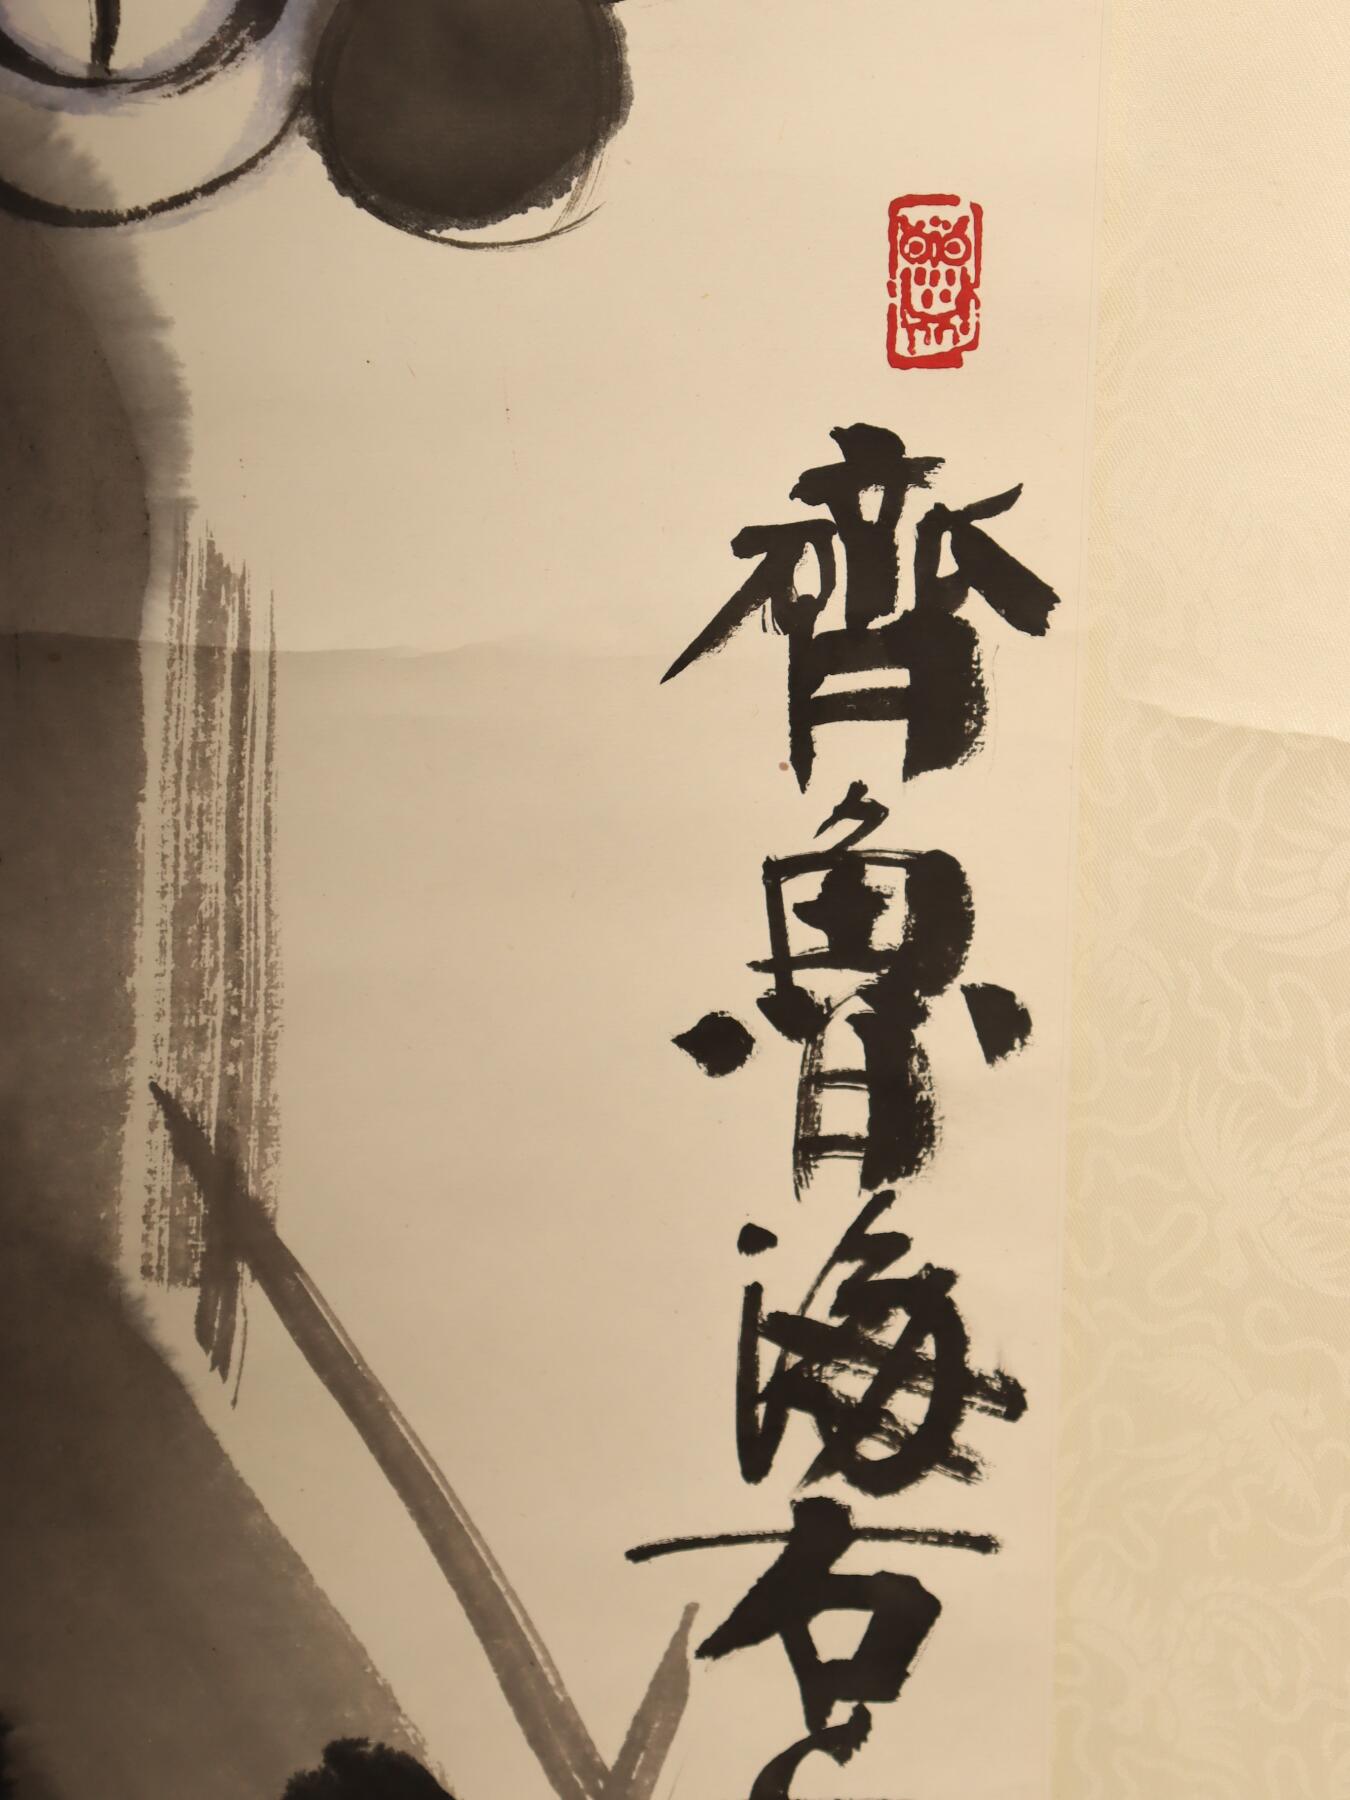 齊魯海右